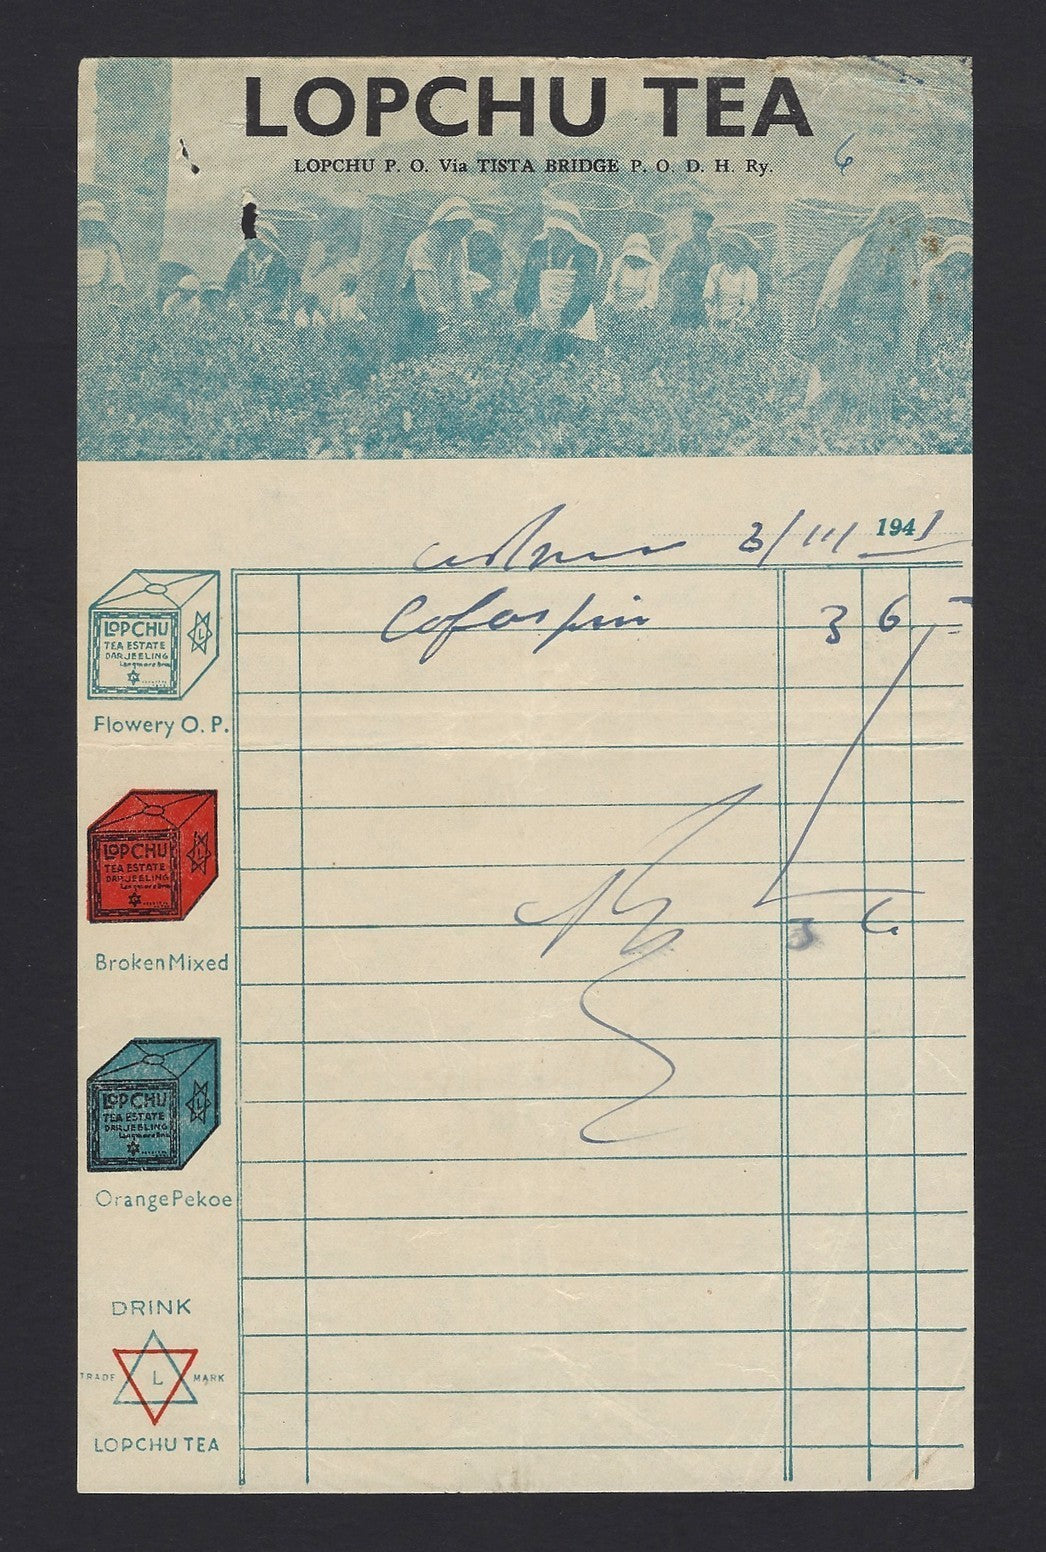 LOPCHU TEA
LOPCHU P. O. Via TISTA BRIDGE P. O. D. H. Ry.
6
3/III 1941
3 6
LOPCHU
TEA ESTATE
DARJEELING
L
Flowery O. P.
LOPCHU
TEA ESTATE
DARJEELING
L
3 6
Broken Mixed
LOPCHU
TEA ESTATE
DARJEELING
L
Orange Pekoe
DRINK
TRADE L MARK
LOPCHU TEA